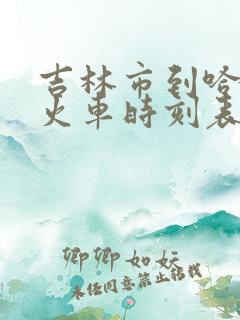 吉林市到哈
火车时刻表
卿卿如妘
未经同意禁止转载